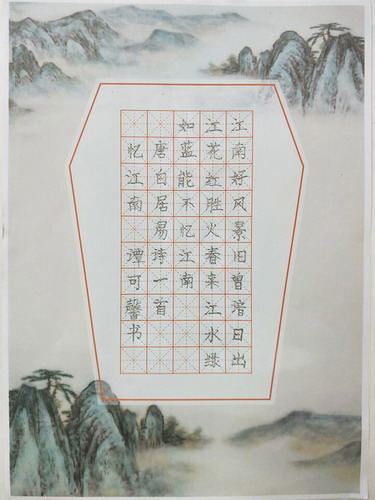 江南好风景旧曾谙日出
江花红胜火春来江水绿
如蓝能不忆江南
唐白居易诗一首
忆江南 谭可馨书